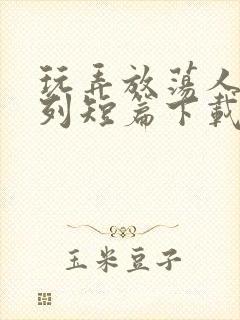 玩弄放荡人
列短篇下载
玉米豆子